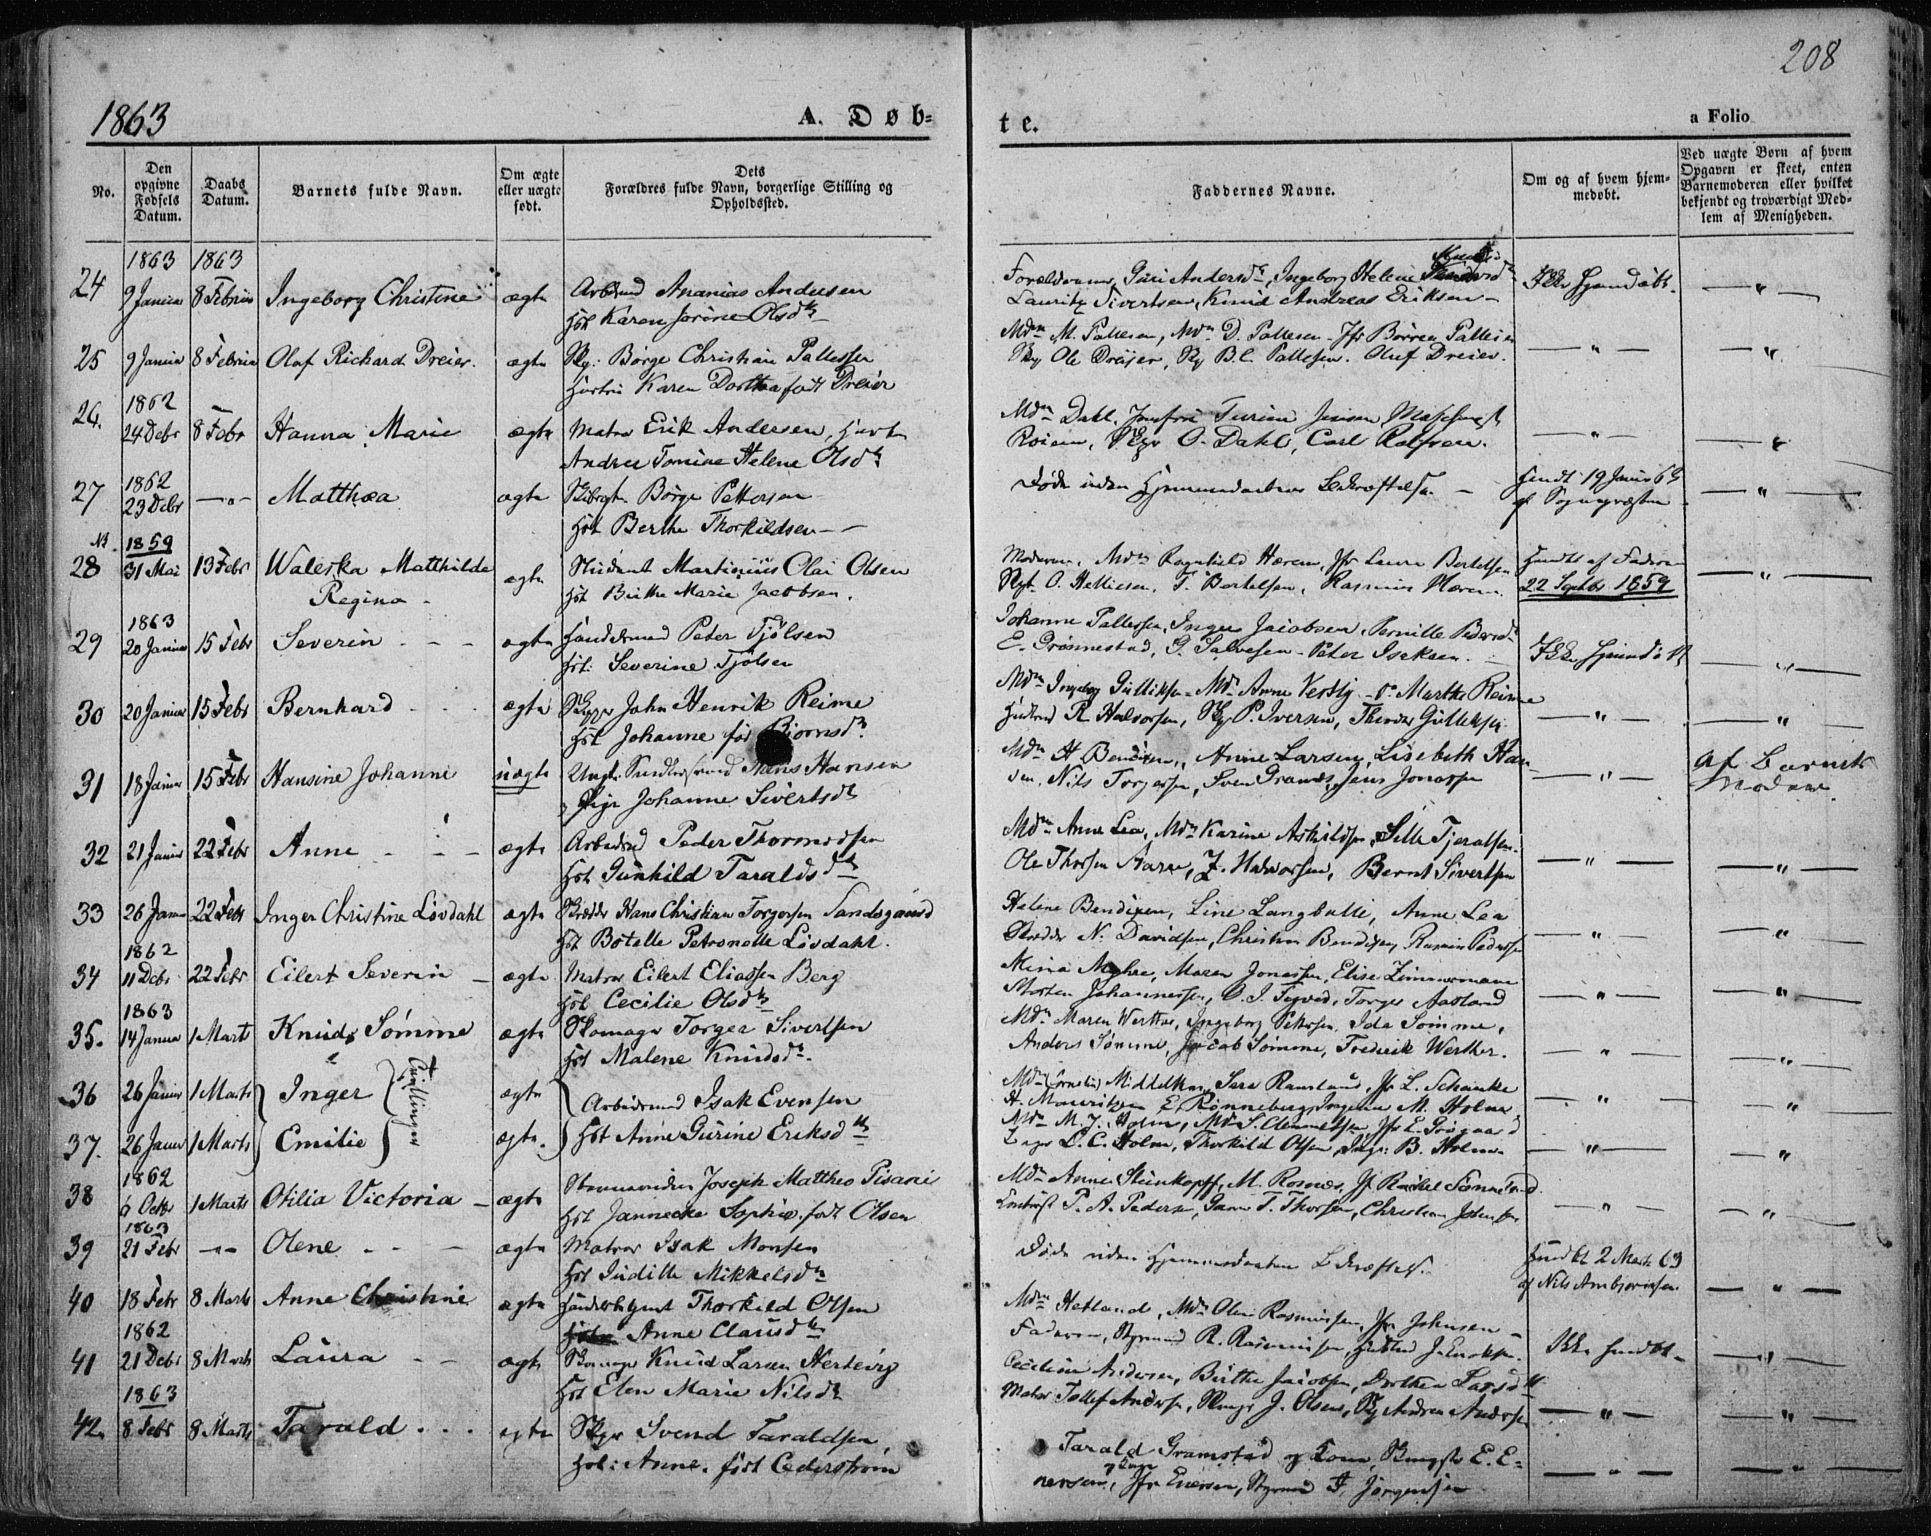 208
1863
A. Døb-
te.
a Folio
No.
Den opgivne Fødsels Datum.
Daabs Datum.
Barnets fulde Navn.
Om ægte eller uægte født.
Dets Forældres fulde Navn, borgerlige Stilling og Opholdssted.
Faddernes Navne.
Om og af hvem hjemmedøbt.
Ved uægte Børn af hvem Opgaven er skeet, enten Barnemoderen eller hvilket bekjendt og troværdigt Medlem af Menigheden.
1863 1863
24 9 Januar 8 Februar Ingeborg Christine ægte Arbmd Ananias Andersen
Hst Karen Jorine Olsdtr
Forældrerne, Guri Andersdr, Ingeborg Helene
Lauritz Sivertsen, Knud Andreas Eriksen — Ikke Hjemdøbt — " —
25 9 Januar 8 Februar Olaf Richard Dreier. ægte Skp: Børge Christian Pallessen
Hustru Karen Dorthea født Dreier
Mdm M. Pallesen, Mdm D. Pallesen, Jfr Børren Pallesen
Skp Ole Dreijer, Sk B.C. Pallesen, Oluf Dreier. — " — "
1862
26. 24 Debr 8 Febr Hanna Marie ægte Matros Erik Andersen, Hustr
Andrea Tomine Helene Olsdtr
Mdm Dahl, Jomfru Turine Jensen,
Skpr O. Dahl, Carl — " — "
1862
27 23 Debr — " — Matthea ægte Børge Pettersen
Hst Berthe Thorkildsen —
Døde inden Hjemmedaabens Bekræftelse. — Hmdt 19 Janr 63
af Sognepræsten — " —
NB. 1859
28 31 Mai 13 Febr Waleska Matthilde
Regina — ægte Student Martinius Olai Olsen
Hst Birthe Marie Jacobsen.
Moderen, Mdm Ragnhild Hæren, Jfr Laura Bertelsen
O. Helliesen, T. Bertelsen, Rasmus Hæren. Hjmdt af Faderen
22 Septbr 1859 — " —
1863
29 20 Januar 15 Febr Severin — — ægte Handelsmd Peter Tjølsen
Hst: Severine Tjølsen
Johanne Pallessen, Inger Jacobsen, Pernille Pedersdr
E. Grønnestad, G. Salvesen, Peter Isaksen. — Ikke Hjemdøbt — " —
30 20 Januar 15 Febr Bernhard ægte Skpr John Henrik Reime
Hst Johanne fød Bjørnsdr.
Mdm Ingebg Gulliksen, Mdm Anne Verdly, Do Marthe Reime
R. Halvorsen, Sk P. Iversen, Theodor Gulliksen — " — "
31 18 Januar 15 Febr Hansine Johanne uægte Ungk. Hans Hansen
Pige Johanne Sivertsdr
Mdm H Bendixen, Anne Larsen, Lisebeth Han-
sen, Nils Torgersen, Sven Jens Jonassen — " — Af Barnets
Moder.
32 21 Januar 22 Febr Anne — — ægte Arbeidsmd Peder Thormodsen
Hst Gunhild Taraldsdtr
Mdm Anne Lea, Mdm Karine Askildsen, Sille Tjeralsen.
Ole Thorsen Aarre, Z. Halvorsen, Bernt Sivertsen — " — "
33 26 Januar 22 Febr Inger Christine Løvdahl ægte Skrædder Hans Christian Torgersen Sandsgaard
Hst Botelle Petronelle Løvdahl.
Helene Bendixen, Line Langballe, Anne Lea
Skrædder N. Davidsen, Christian Bendixen, Rasmus Pedersen — " — "
1862
34 11 Debr 22 Febr Eilert Severin ægte Matros Eilert Eliassen Berg
Hst Cecilie Olsdtr
Mina Myhre, Maren Jonassen, Elise Zimmermann
Morten Johannessen, O. J. Tegved, Torger Aasland — " — "
1863
35. 14 Januar 1 Marts Knud Sømme ægte Skomager Torger Sivertsen
Hst Malene Knudsdtr.
Mdm Maren Werther, Ingeborg Petersen, Ida Sømme,
Anders Sømme, Jacob Sømme, Frederik Werther. — " — "
36 26 Januar 1 Marts Inger Tvillinger ægte Arbeidsmd Isak Evensen
Mdm Middelthon, Sara Ramsland, Jfr L. Schanke
H. Mauritzen E. Rønneberg, M. Holm — " — "
37. 26 Januar 1 Marts Emilie ægte. Hst Anne Gurine Eriksdtr
Mdm M. J. Holm, Mdm S. Clemmetsen, Jfr E.
L. C. Holm, Thorkild Olsen, B. Holm. — " — "
1862
38 6 Octbr 1 Marts Otilia Victoria — ægte Joseph Mattheo Pisani
Hst Jannecke Sophie, født Olsen
Mdm Anne Steinkopff, M. Rosnæs, Jfr Rakel
P. A. Pedersen, T. Thorsen, Christian Johnsen — " — "
1863
39 21 Febr — " — Olene — — ægte Matros Isak Monsen
Hst Judille Mikkelsdtr
Døde inden Hjemmedaaben Bekræftelse. Hjmdbt 2 Marts 63
af Nils Ambjørnsen — " —
40 18 Febr 8 Marts Anne Christine ægte Thorkild Olsen
Anne Clausdtr
Mdm Hetland, Mdm Olene Rasmussen, Jfr Johnsen —
Faderen, Styrmand R. Rasmussen, J. Enoksen. Ikke hmdbt — " —
1862
41 21 Debr 8 Marts Laura — — ægte Skomager Knud Larsen Hertevig
Hst Elen Marie Nilsdtr
Ceciliane Andersen, Birthe Jacobsen, Dorthea Larsdtr
Matros Tollef Andersen, J. Olsen, Andreas Andersen — " — "
1863
42. 8 Febr 8 Marts Tarald . . . ægte Skpr Svend Taraldsen,
Hst: Anne, født Cederstrøm
Tarald Gramstad og Kone, E. E-
nersen, og Kone Jfr Enersen, Styrmd T. Jørgensen — " — "